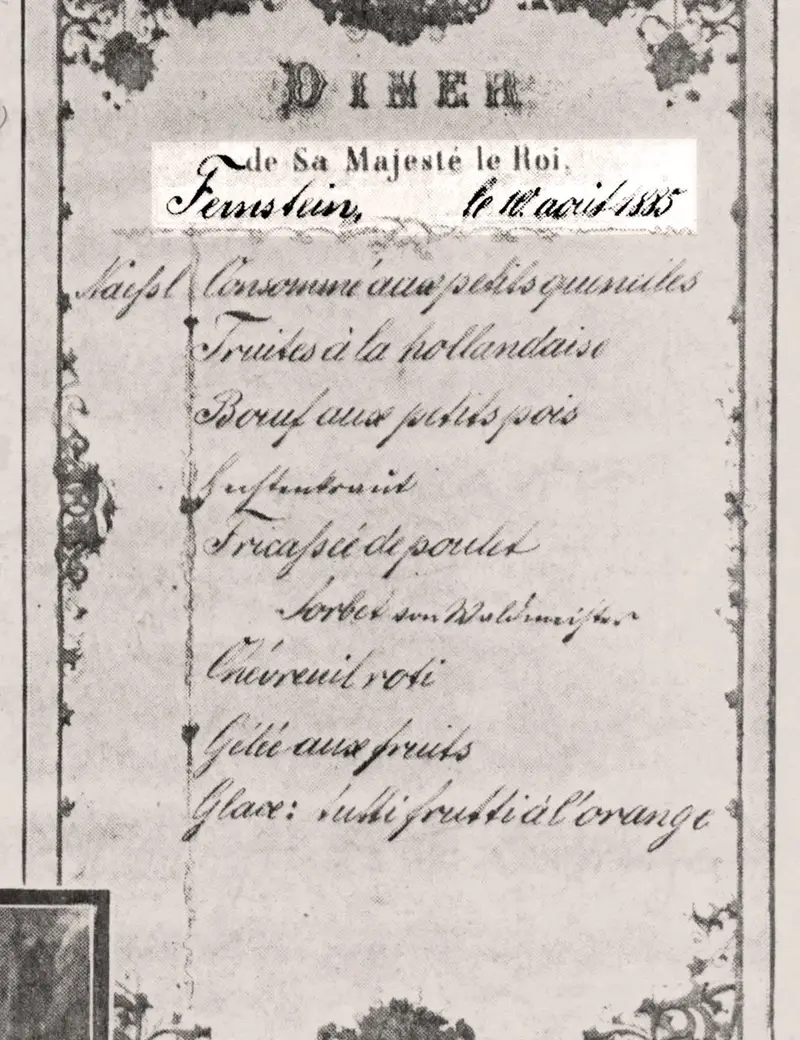 DINER
de Sa Majesté le Roi.
Fernstein, le 10. août 1885
Consommé aux petits quenelles
Truites à la hollandaise
Bœuf aux petits pois
Fricassée de poulet
Sorbet von Waldmeister
Chévreuil roti
Gélée aux fruits
Glace: tutti frutti à l'orange